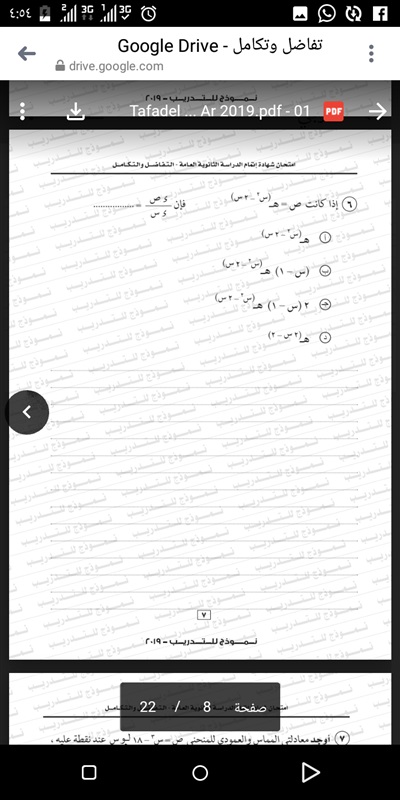 ٤:٥٤
تفاضل وتكامل - Google Drive
drive.google.com
نموذج للتدريب - ٢٠١٩
Tafadel ... Ar 2019.pdf - 01 PDF
امتحان شهادة إتمام الدراسة الثانوية العامة - التفاضل والتكامل
٦ إذا كانت ص = هـ(س٢ - ٢ س) فإن ءص/ءس = ................
أ هـ(س٢ - ٢ س)
ب (س - ١) هـ(س٢ - ٢ س)
ج ٢ (س - ١) هـ(س٢ - ٢ س)
د هـ(٢ س - ٢)
٧
نموذج للتدريب - ٢٠١٩
صفحة 8 / 22
٧ أوجد معادلتي المماس والعمودي للمنحنى ص = س٣ - ١٨ لوس عند نقطة عليه ،